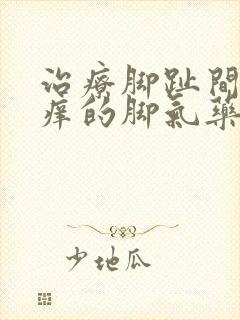 治療脚趾間
痒的脚氣藥
少地瓜